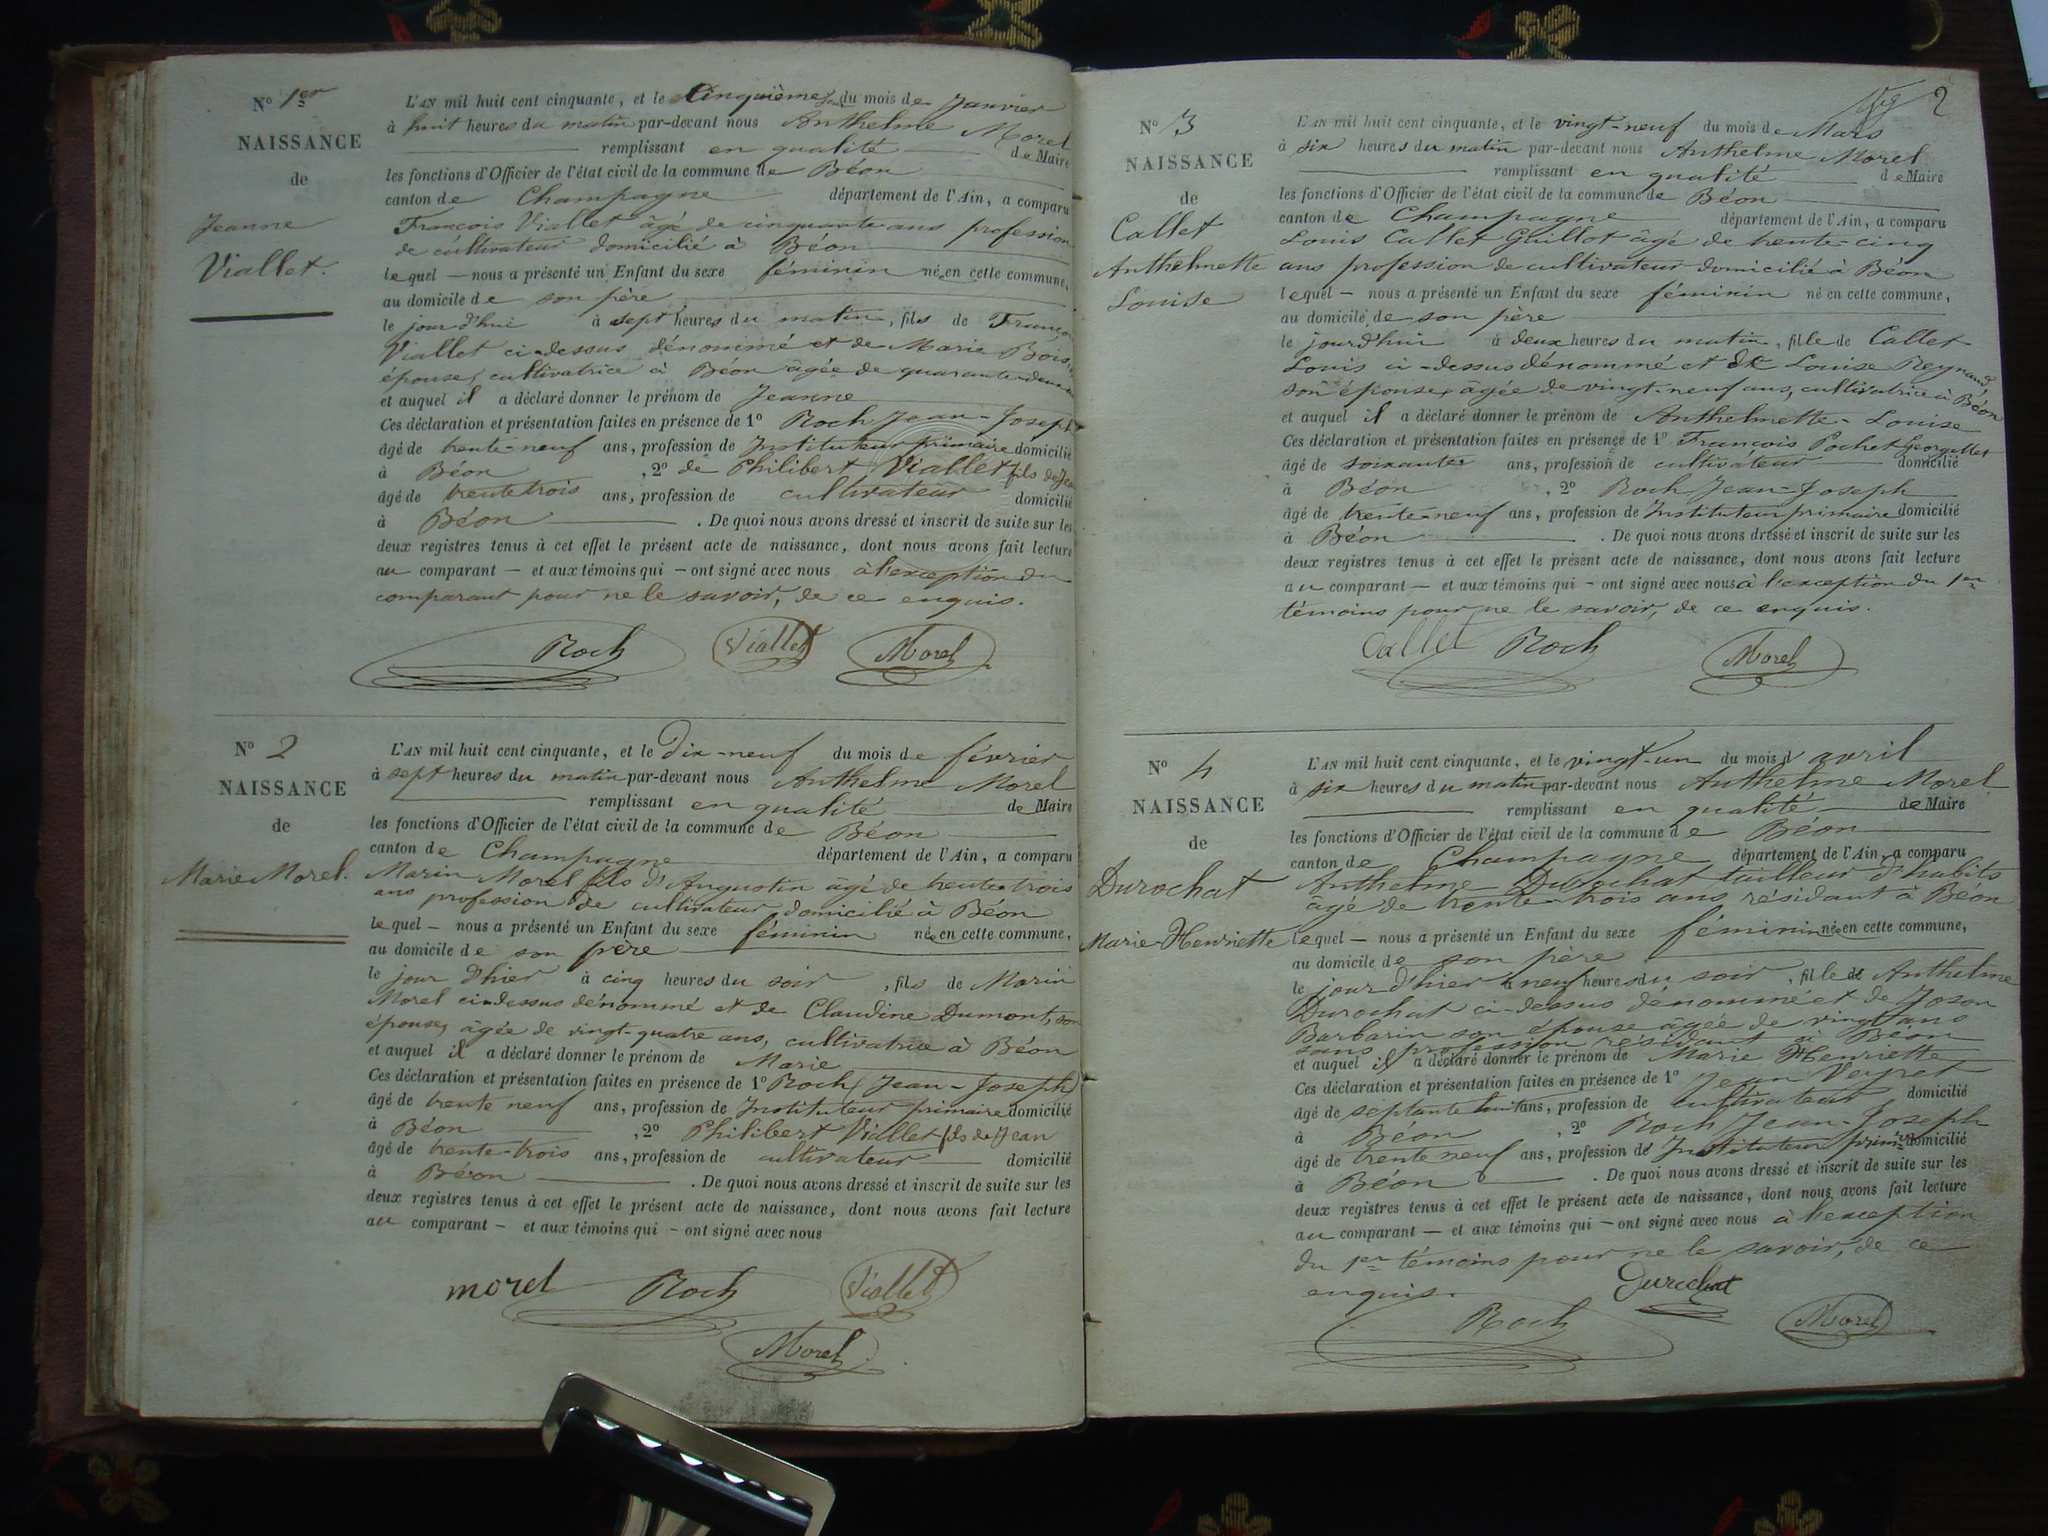 N° 1er
NAISSANCE
de
Jeanne
Viallet.
L'AN mil huit cent cinquante, et le Cinquième jour du mois de Janvier
à huit heures du matin par-devant nous Anthelme Morel
remplissant en qualité de Maire
les fonctions d'Officier de l'état civil de la commune de Béon
canton de Champagne département de l'Ain, a comparu
François Viallet âgé de cinquante ans profession
de cultivateur domicilié à Béon
lequel — nous a présenté un Enfant du sexe féminin née en cette commune,
au domicile de son père
le jourd'hui à sept heures du matin, fils de François
Viallet ci-dessus dénommé et de Marie Bois,
épouse, cultivatrice à Béon âgée de quarante-deux
et auquel il a déclaré donner le prénom de Jeanne
Ces déclaration et présentation faites en présence de 1° Roch Jean-Joseph
âgé de trente-neuf ans, profession de Instituteur primaire domicilié
à Béon , 2° de Philibert Viallet fils de Jean
âgé de trente trois ans, profession de cultivateur domicilié
à Béon . De quoi nous avons dressé et inscrit de suite sur les
deux registres tenus à cet effet le présent acte de naissance, dont nous avons fait lecture
au comparant — et aux témoins qui — ont signé avec nous à l'exception du
comparant pour ne le savoir, de ce enquis.
Roch Viallet Morel
N° 2
NAISSANCE
de
Marie Morel.
L'AN mil huit cent cinquante, et le Dix-neuf du mois de février
à sept heures du matin par-devant nous Anthelme Morel
remplissant en qualité de Maire
les fonctions d'Officier de l'état civil de la commune de Béon
canton de Champagne département de l'Ain, a comparu
Marin Morel fils d'Augustin âgé de trente-trois
ans profession de cultivateur domicilié à Béon
lequel — nous a présenté un Enfant du sexe féminin née en cette commune,
au domicile de son père
le jour d'hier à cinq heures du soir , fils de Marin
Morel ci-dessus dénommé et de Claudine Dumont, son
épouse, âgée de vingt-quatre ans, cultivatrice à Béon
et auquel il a déclaré donner le prénom de Marie
Ces déclaration et présentation faites en présence de 1° Roch Jean-Joseph
âgé de trente neuf ans, profession de Instituteur primaire domicilié
à Béon , 2° Philibert Viallet fils de Jean
âgé de trente-trois ans, profession de cultivateur domicilié
à Béon . De quoi nous avons dressé et inscrit de suite sur les
deux registres tenus à cet effet le présent acte de naissance, dont nous avons fait lecture
au comparant — et aux témoins qui — ont signé avec nous
morel Roch Viallet
Morel
2
N° 3
NAISSANCE
de
Callet
Anthelmette
Louise
L'AN mil huit cent cinquante, et le vingt-neuf du mois de Mars
à six heures du matin par-devant nous Anthelme Morel
remplissant en qualité de Maire
les fonctions d'Officier de l'état civil de la commune de Béon
canton de Champagne département de l'Ain, a comparu
Louis Callet Guillot âgé de trente-cinq
ans profession de cultivateur domicilié à Béon
lequel — nous a présenté un Enfant du sexe féminin né en cette commune,
au domicile de son père
le jourd'hui à deux heures du matin, fille de Callet
Louis ci-dessus dénommé et de Louise Reynaud,
son épouse, âgée de vingt-neuf ans, cultivatrice à Béon
et auquel il a déclaré donner le prénom de Anthelmette-Louise
Ces déclaration et présentation faites en présence de 1° François Pochet Georgettet
âgé de soixante ans, profession de cultivateur domicilié
à Béon , 2° Roch Jean-Joseph
âgé de trente-neuf ans, profession de Instituteur primaire domicilié
à Béon . De quoi nous avons dressé et inscrit de suite sur les
deux registres tenus à cet effet le présent acte de naissance, dont nous avons fait lecture
au comparant — et aux témoins qui — ont signé avec nous à l'exception du 1er
témoins pour ne le savoir, de ce enquis.
Callet Roch Morel
N° 4
NAISSANCE
de
Durochat
Marie-Henriette
L'AN mil huit cent cinquante, et le vingt-un du mois d'avril
à six heures du matin par-devant nous Anthelme Morel
remplissant en qualité de Maire
les fonctions d'Officier de l'état civil de la commune de Béon
canton de Champagne département de l'Ain, a comparu
Anthelme Durochat tailleur d'habits
âgé de trente-trois ans, résidant à Béon
lequel — nous a présenté un Enfant du sexe féminin née en cette commune,
au domicile de son père
le jour d'hier à neuf heures du soir , fille de Anthelme
Durochat ci-dessus dénommé et de Joson
Barbarin son épouse âgée de vingt ans
sans profession résidant à Béon
et auquel il a déclaré donner le prénom de Marie Henriette
Ces déclaration et présentation faites en présence de 1° Jean Veyret
âgé de septante huit ans, profession de cultivateur domicilié
à Béon , 2° Roch Jean-Joseph
âgé de trente neuf ans, profession de Instituteur primre domicilié
à Béon . De quoi nous avons dressé et inscrit de suite sur les
deux registres tenus à cet effet le présent acte de naissance, dont nous avons fait lecture
au comparant — et aux témoins qui — ont signé avec nous à l'exception
du 1er témoins pour ne le savoir, de ce
enquis.
Durochat
Roch Morel